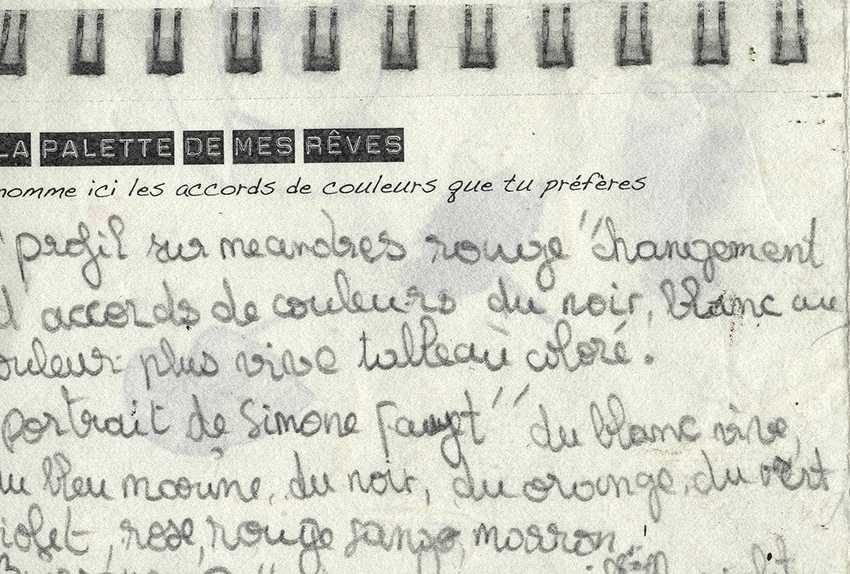 LA PALETTE DE MES RÊVES
nomme ici les accords de couleurs que tu préfères
" profil sur meandres rouge "changement
d'accords de couleurs du noir, blanc au
ouleur plus vive tableau coloré.
portrait de Simone " du blanc vive,
du bleu du noir, du orange, du vert
iolet, rose, rouge marron,